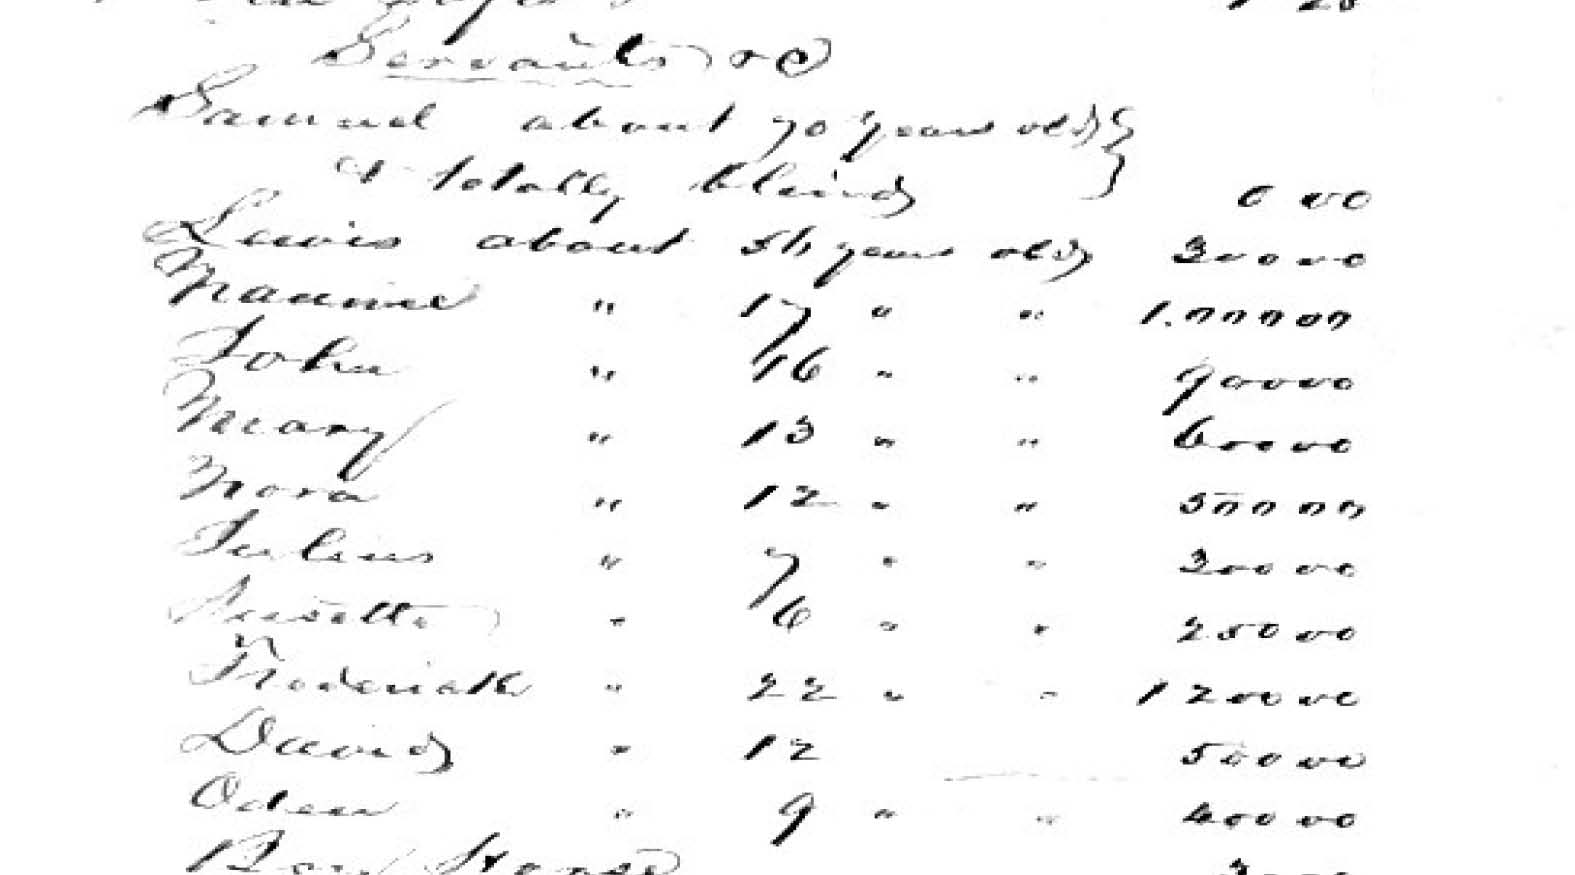 Servants &c
Samuel about 70 years old }
& totally blind } 0 00
Lewis about 54 years old 300 00
" 17 " " 1.000 00
John " 16 " " 900 00
Mary " 13 " " 600 00
Nora " 12 " " 500 00
Julius " 7 " " 300 00
" 6 " " 250 00
Frederick " 22 " " 1200 00
David " 12 500 00
Oden " 9 " " 400 00
Bay Horse